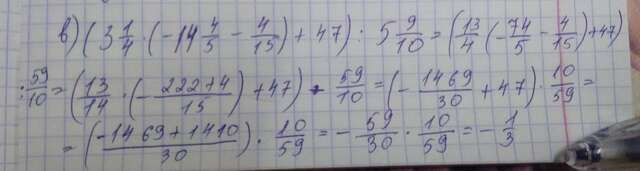 в) (3 1/4 · (-14 4/5 - 4/15) + 47) : 5 9/10 = (13/4 (-74/5 - 4/15) + 47)
: 59/10 = (13/14 · (-222+4/15) + 47) · 59/10 = (-1469/30 + 47) · 10/59 =
= (-1469+1410/30) · 10/59 = -59/30 · 10/59 = -1/3